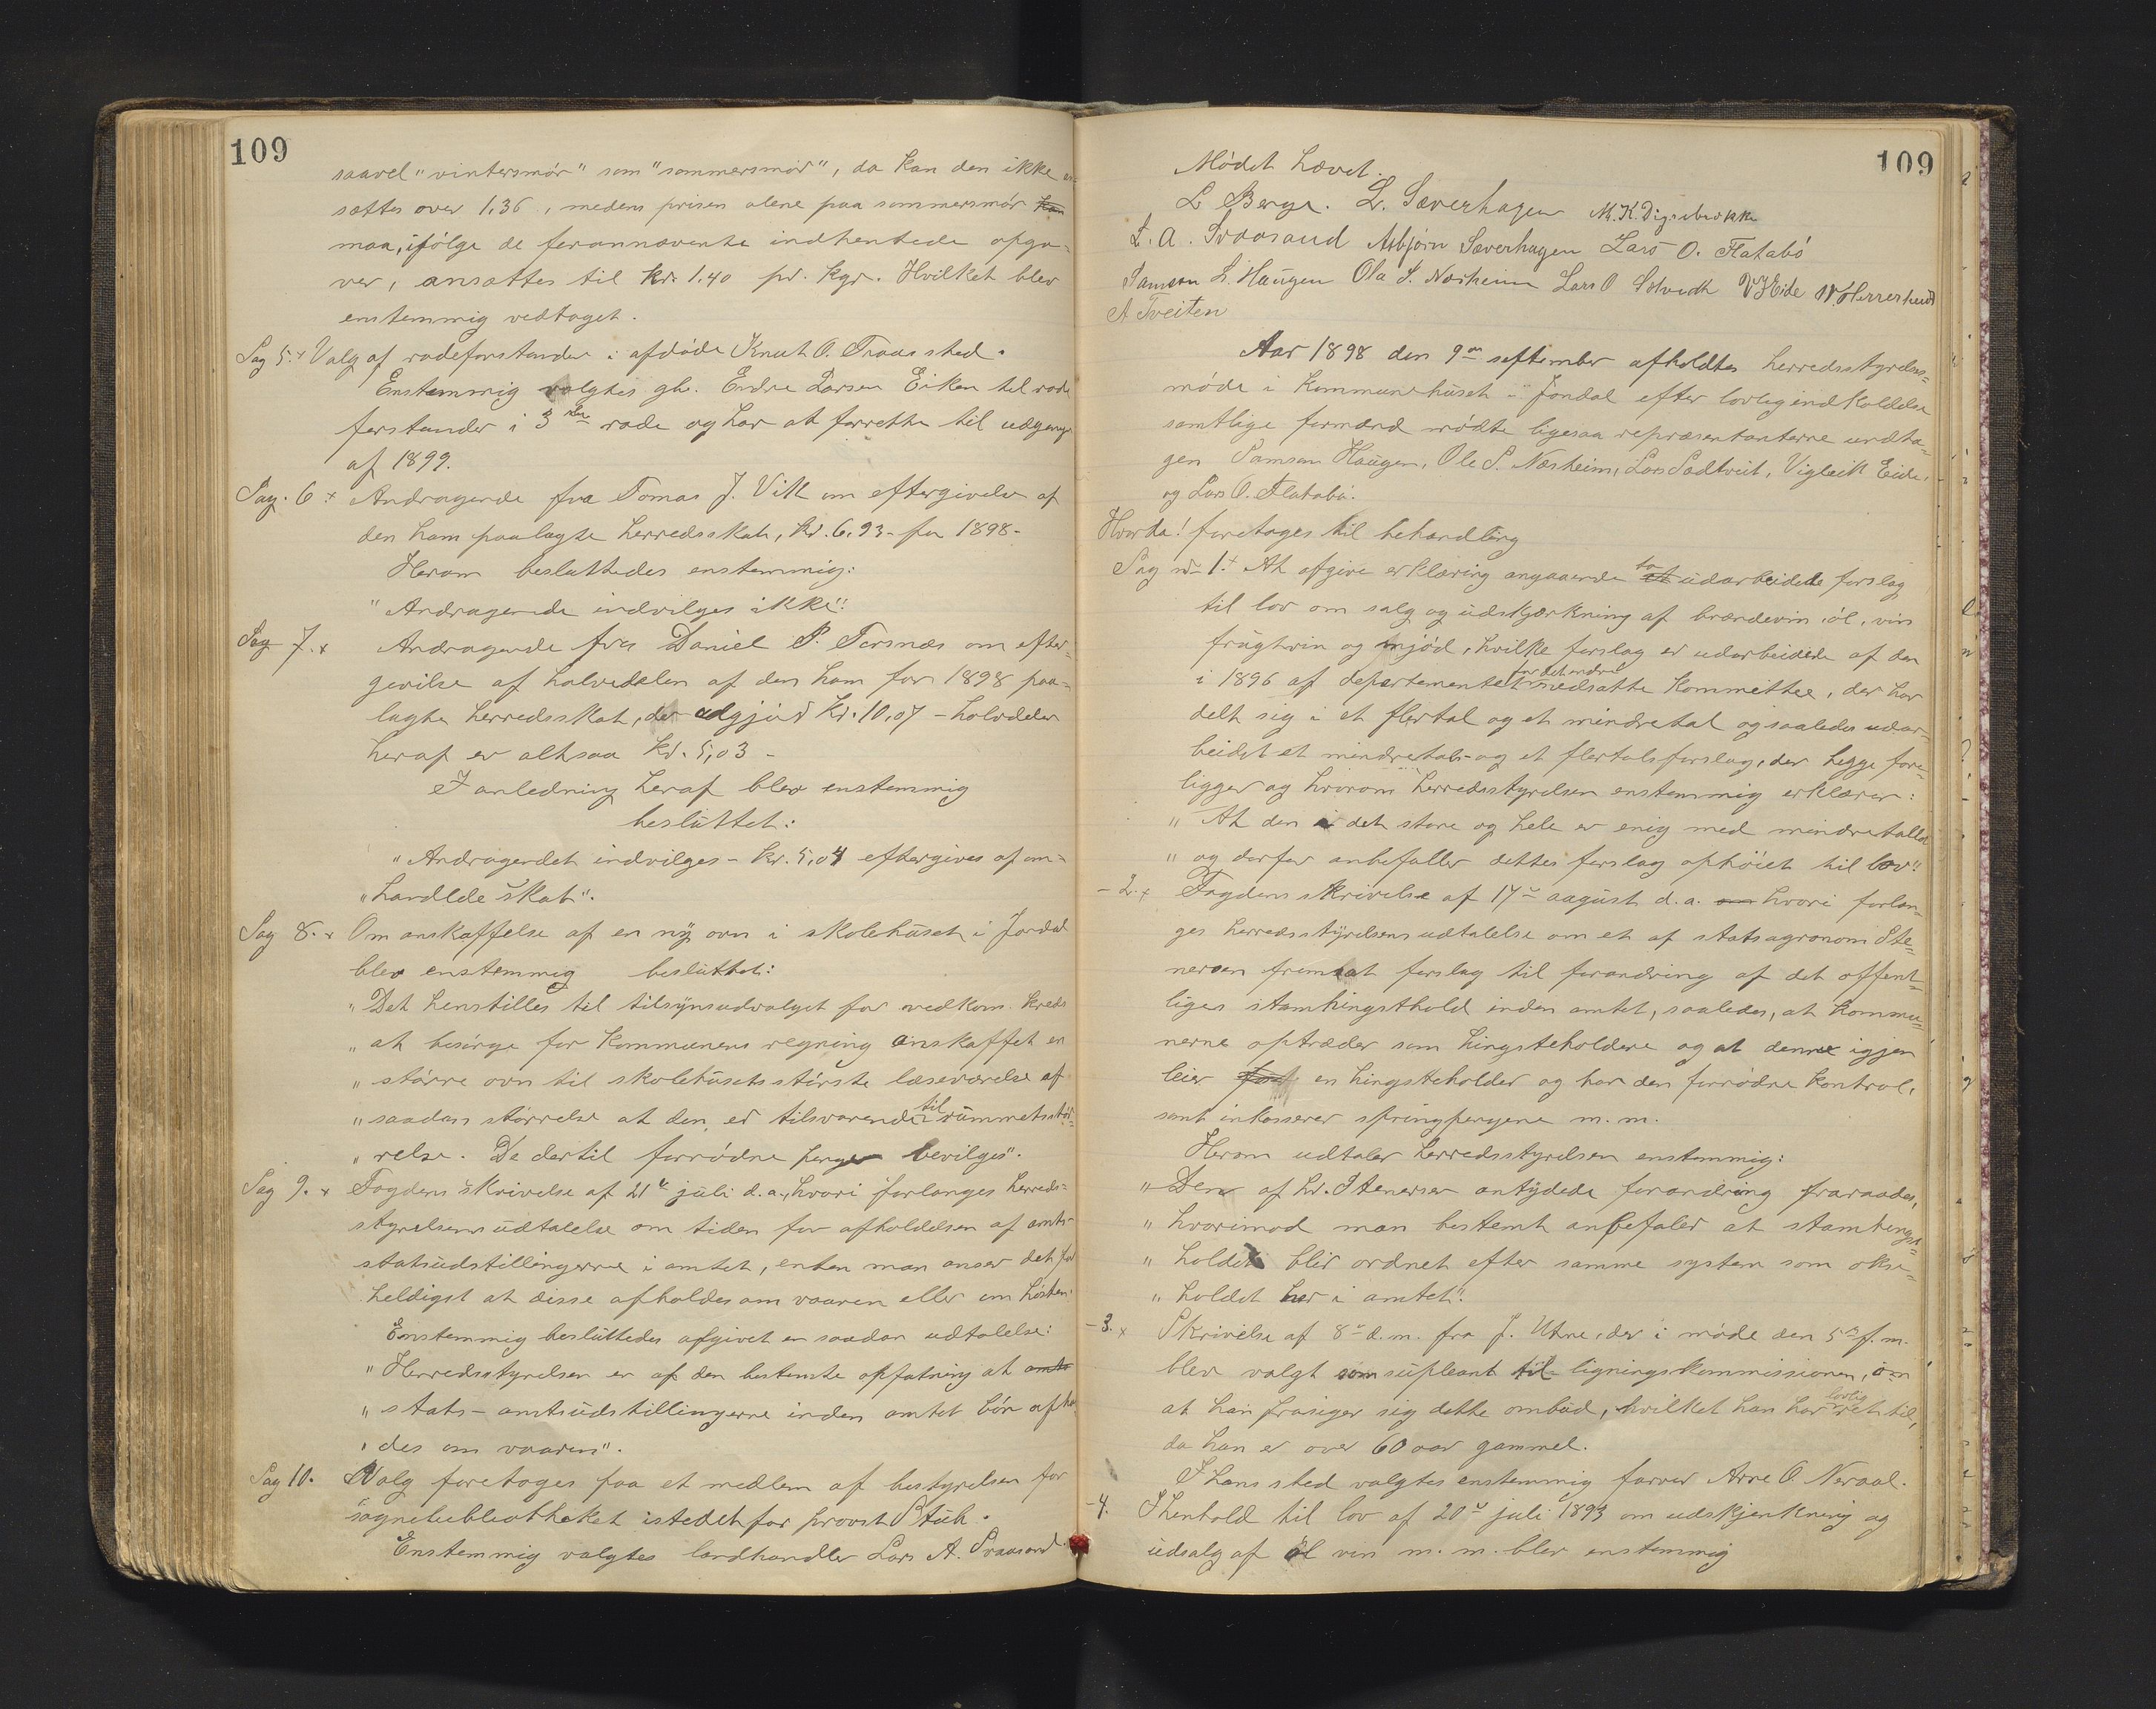 109
saavel "vintersmør" som "sommersmør", da kan den ikke an-
sættes over 1,36, medens prisen alene paa sommersmør kan
maa, ifølge de forannævnte indhentede opga-
ver, ansættes til kr. 1.40 pr. kgr. Hvilket blev
enstemmig vedtaget.
Sag 5.x Valg af rodeforstander i afdøde Knut O. Traas sted.
Enstemmig valgtes gb. Endre Larsen Eiken til rode
forstander i 3die rode og har at forrette til udgang
af 1899.
Sag. 6 x Andragende fra Tomas J. Vik om eftergivelse af
den ham paalagte herredsskat, kr. 6,93 - for 1898 -
Herom besluttedes enstemmig:
"Andragende indvilges ikke".
Sag 7. x Andragende fra Daniel P. Torsnæs om efter-
givilse af halvedelen af den ham for 1898 paa-
lagte herredsskat, der udgjør kr. 10,07 - halvdelen
heraf er altsaa kr. 5,03 -
I anledning heraf blev enstemmig
besluttet:
"Andragendet indvilges - kr. 5,04 eftergives af om-
"handlede skat".
Sag 8. x Om anskaffelse af en ny ovn i skolehuset i Jondal
blev enstemmig besluttet:
"Det henstilles til tilsynsudvalget for vedkom. kreds
"at besørge for kommunens regning anskaffet en
"større ovn til skolehusets største læseværelse af
"saadan størrelse at den er tilsvarende til rummets stør-
"relse. De dertil fornødne penge bevilges".
Sag 9. x Fogdens skrivelse af 21de juli d.a., hvori forlanges herreds-
styrelsens udtalelse om tiden for afholdelsen af amts-
statsudstillingerne i amtet, enten man anser det for
heldigst at disse afholdes om vaaren eller om høsten.
Enstemmig besluttedes afgivet en saadan udtalelse:
"Herredsstyrelsen er af den bestemte opfatning at amts
"stats - amtsudstillingerne inden amtet bør afhol
"des om vaaren".
Sag 10. Valg foretages paa et medlem af bestyrelsen for
sognebiblotheket istedetfor provst Stub.
Enstemmig valgtes landhandler Lars A. Svaasand.
109
Mødet hævet.
L Berge. L. Sæverhagen M. K. Digrebrokke
L. A. Svaasand Asbjørn Sæverhagen Lars O. Flatabø
Samson L. Haugen Ola S. Næsheim Lars O Solvedt V J Eide N Herreherid
A Tveiten
Aar 1898 den 9de september afholdtes herredsstyrelses-
møde i kommunehuset i Jondal efter lovlig indkaldelse
samtlige formænd mødte ligesaa repræsentanterne undta-
gen Samson Haugen, Ole S. Næsheim, Lars Sædtveit, Vigleik Eide,
og Lars O. Flatabø.
Hvorda! foretages til behandling
Sag no 1.x At afgive erklæring angaaende to et udarbeidede forslag
til lov om salg og udskjænkning af brændevin, øl, vin
frugtvin og mjød, hvilke forslag er udarbeidede af den
i 1896 af departementet for det indre nedsatte kommittee, der har
delt sig i et flertal og et mindretal og saaledes udar-
beidet et mindretals- og et flertalsforslag, der begge fore-
ligger og hvorom herredsstyrelsen enstemmig erklærer:
"At den i det store og hele er enig med mindretallet
"og derfor anbefaller dettes forslag ophøiet til lov".
- 2. x Fogdens skrivelse af 17de august d.a. om hvori forlan-
ges herredsstyrelsens udtalelse om et af statsagronom Ste-
nersen fremsat forslag til forandring af det offent-
liges stamhingsthold inden amtet, saaledes, at kommu-
nerne optræder som hingsteholdere og at denne igjen
leier en hingsteholder og har den fornødne kontrol,
samt inkasserer springpengene m.m.
Herom udtaler herredsstyrelsen enstemmig:
"Den af hr. Stenersen antydede forandring fraraades,
"hvorimod man bestemt anbefaler at stamhingst-
"holdet blir ordnet efter samme system som okse-
"holdet her i amtet".
- 3. x Skrivelse af 8de d.m. fra J. Utne, der i møde den 5te f.m.
blev valgt som supleant til ligningskommissionen, om
at han frasiger sig dette ombud, hvilket han har lovlig ret til,
da han er over 60 aar gammel.
I hans sted valgtes enstemmig farver Arne O. Neraal.
- 4. I henhold til lov af 20de juli 1893 om udskjenkning og
udsalg af øl vin m.m. blev enstemmig